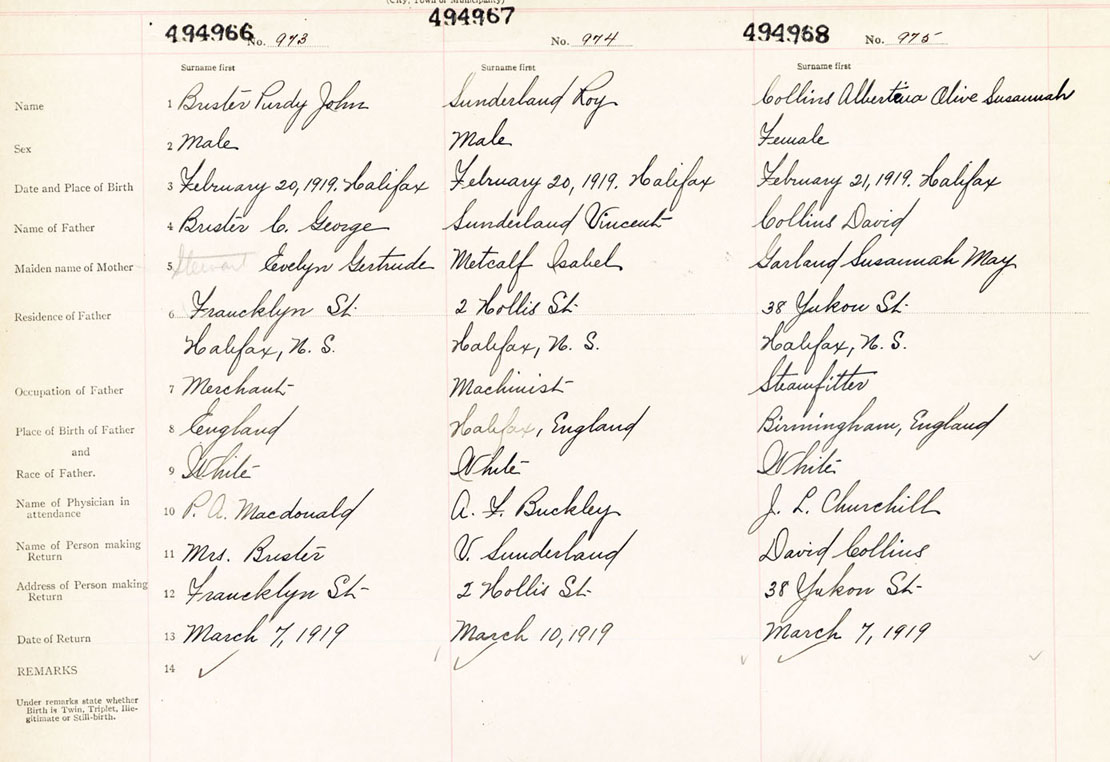 (City, Town or Municipality)
494966 No. 973
494967 No. 974
494968 No. 975
Surname first Surname first Surname first
Name 1 Brister Purdy John Sunderland Roy Collins Albertina Olive Susannah
Sex 2 Male Male Female
Date and Place of Birth 3 February 20, 1919. Halifax February 20, 1919. Halifax February 21, 1919. Halifax
Name of Father 4 Brister C. George Sunderland Vincent Collins David
Maiden name of Mother 5 Stewart Evelyn Gertrude Metcalf Isabel Garland Susannah May
Residence of Father 6 Francklyn St. 2 Hollis St. 38 Yukon St.
Halifax, N. S. Halifax, N. S. Halifax, N. S.
Occupation of Father 7 Merchant Machinist Steamfitter
Place of Birth of Father 8 England Halifax, England Birmingham, England
and
Race of Father. 9 White White White
Name of Physician in attendance 10 P. A. Macdonald A. F. Buckley J. L. Churchill
Name of Person making Return 11 Mrs. Brister V. Sunderland David Collins
Address of Person making Return 12 Francklyn St. 2 Hollis St. 38 Yukon St.
Date of Return 13 March 7, 1919 March 10, 1919 March 7, 1919
REMARKS 14
Under remarks state whether
Birth is Twin, Triplet, Ille-
gitimate or Still-birth.